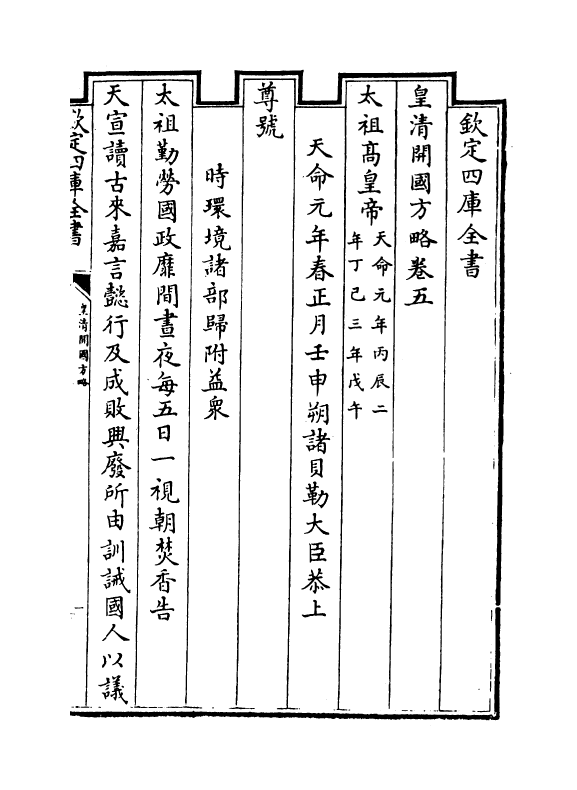 欽定四庫全書
皇清開國方略卷五
太祖髙皇帝天命元年丙辰二
年丁巳三年戊午
天命元年春正月壬申朔諸貝勒大臣恭上
尊號
時環境諸部歸附益衆
太祖勤勞國政靡間晝夜每五日一視朝焚香告
天宣讀古來嘉言懿行及成敗興廢所由訓誡國人以議
欽定四庫全書
皇清開國方略
一